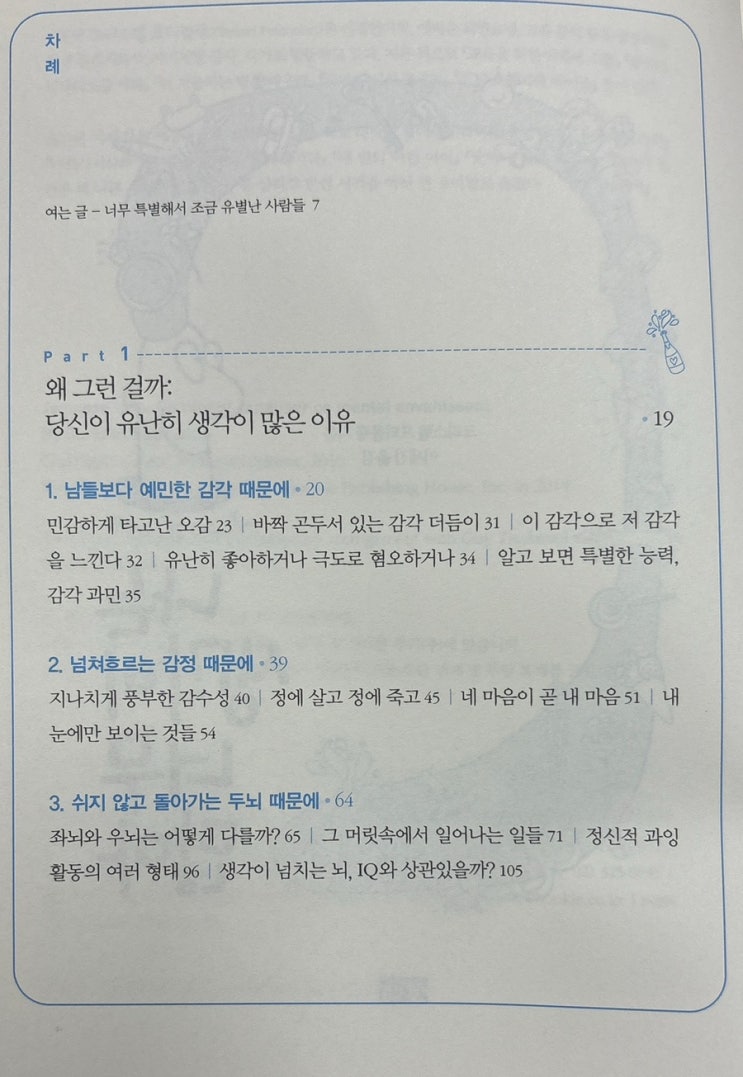 차
례
여는 글 – 너무 특별해서 조금 유별난 사람들 7
Part 1
왜 그런 걸까:
당신이 유난히 생각이 많은 이유 • 19
1. 남들보다 예민한 감각 때문에 • 20
민감하게 타고난 오감 23 | 바짝 곤두서 있는 감각 더듬이 31 | 이 감각으로 저 감각
을 느낀다 32 | 유난히 좋아하거나 극도로 혐오하거나 34 | 알고 보면 특별한 능력,
감각 과민 35
2. 넘쳐흐르는 감정 때문에 • 39
지나치게 풍부한 감수성 40 | 정에 살고 정에 죽고 45 | 네 마음이 곧 내 마음 51 | 내
눈에만 보이는 것들 54
3. 쉬지 않고 돌아가는 두뇌 때문에 • 64
좌뇌와 우뇌는 어떻게 다를까? 65 | 그 머릿속에서 일어나는 일들 71 | 정신적 과잉
활동의 여러 형태 96 | 생각이 넘치는 뇌, IQ와 상관있을까? 105